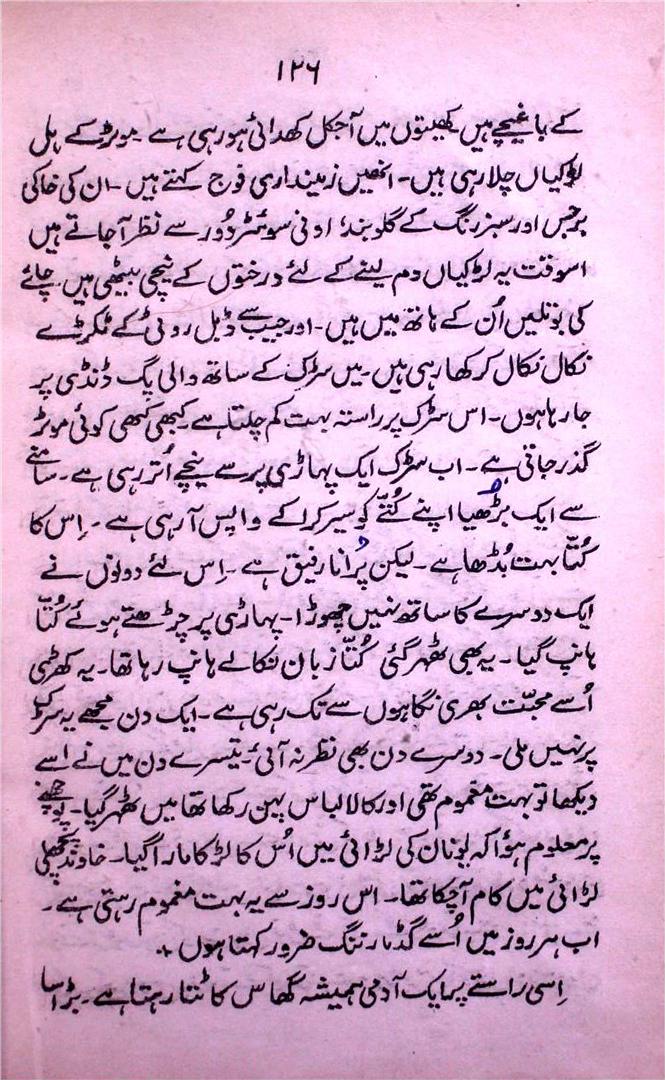 ۱۲۶
کے باغیچے ہیں۔ کھیتوں میں آجکل کھدائی ہو رہی ہے۔ موٹر کے ہل
لڑکیاں چلا رہی ہیں۔ انھیں زمینداری فوج کہتے ہیں۔ ان کی خاکی
برجس اور سبز رنگ کے گلوبند، اونی سوئٹر دُور سے نظر آجاتے ہیں
اسوقت یہ لڑکیاں دم لینے کے لئے درختوں کے نیچی بیٹھی ہیں۔ چائے
کی بوتلیں اُن کے ہاتھ میں ہیں۔ اور جیب سے ڈبل روٹی کے ٹکرڑے
نکال نکال کر کھا رہی ہیں۔ میں سڑک کے ساتھ والی پگ ڈنڈی پر
جا رہا ہوں۔ اس سڑک پر راستہ بہت کم چلتا ہے۔ کبھی کبھی کوئی موٹر
گذر جاتی ہے۔ اب سڑک ایک پہاڑی پر سے نیچے اُتر رہی ہے۔ سامنے
سے ایک بُڑھیا اپنے کُتّے کو سیر کرا کے واپس آ رہی ہے۔ اِس کا
کُتّا بہت بُڈھا ہے۔ لیکن پُرانا رفیق ہے۔ اِس لئے دونوں نے
ایک دوسرے کا ساتھ نہیں چھوڑا۔ پہاڑی پر چڑھتے ہوئے کُتّا
ہانپ گیا۔ یہ بھی ٹھہر گئی کُتّا زبان نکالے ہانپ رہا تھا۔ یہ کھڑی
اُسے محبّت بھری نگاہوں سے تک رہی ہے۔ ایک دن مجھے یہ سڑک
پر نہیں ملی۔ دوسرے دن بھی نظر نہ آئی۔ تیسرے دن میں نے اسے
دیکھا تو بہت مغموم تھی اور کالا لباس پہن رکھا تھا میں ٹھہر گیا۔ پوچھنے
پر معلوم ہؤا کہ یونان کی لڑائی میں اُس کا لڑکا مارا گیا۔ خاوند پچھلی
لڑائی میں کام آچکا تھا۔ اس روز سے یہ بہت مغموم رہتی ہے۔
اب ہر روز میں اُسے گڈمارننگ ضرور کہتا ہوں ٭
اِسی راستے پر ایک آدمی ہمیشہ گھاس کاٹتا رہتا ہے۔ بڑا سا